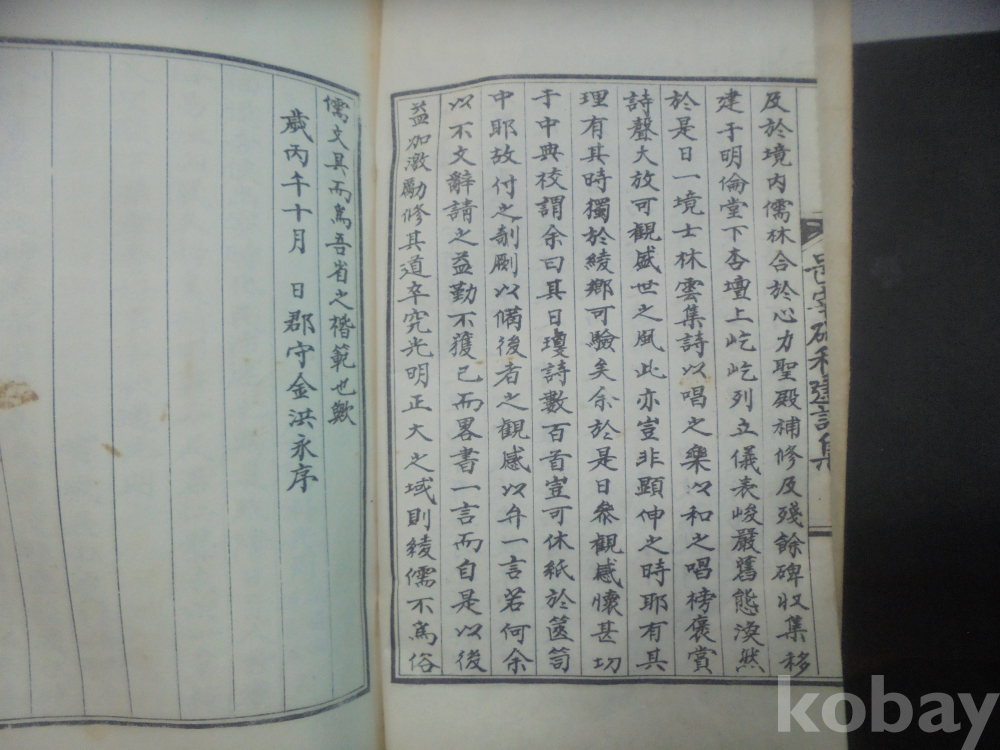 及於境内儒林合於心力聖殿補修及殘餘碑収集移
建于明倫堂下杏壇上屹屹列立儀表峻嚴舊態渙然
於是日一境士林雲集詩以唱之樂以和之唱榜褒賞
詩聲大放可觀盛世之風此亦豈非顯伸之時耶有其
理有其時獨於綾鄉可驗矣余於是日叅觀感懷甚切
于中典校謂余曰其日瓊詩數百首豈可休紙於篋笥
中耶故付之剞劂以備後者之觀感以弁一言若何余
以不文辭請之益勤不獲已而畧書一言而自是以後
益加激勵修其道卒究光明正大之域則綾儒不爲俗
儒文具而爲吾省之楷範也歟
歲丙午十月 日郡守金洪永序
建詩集
kobay